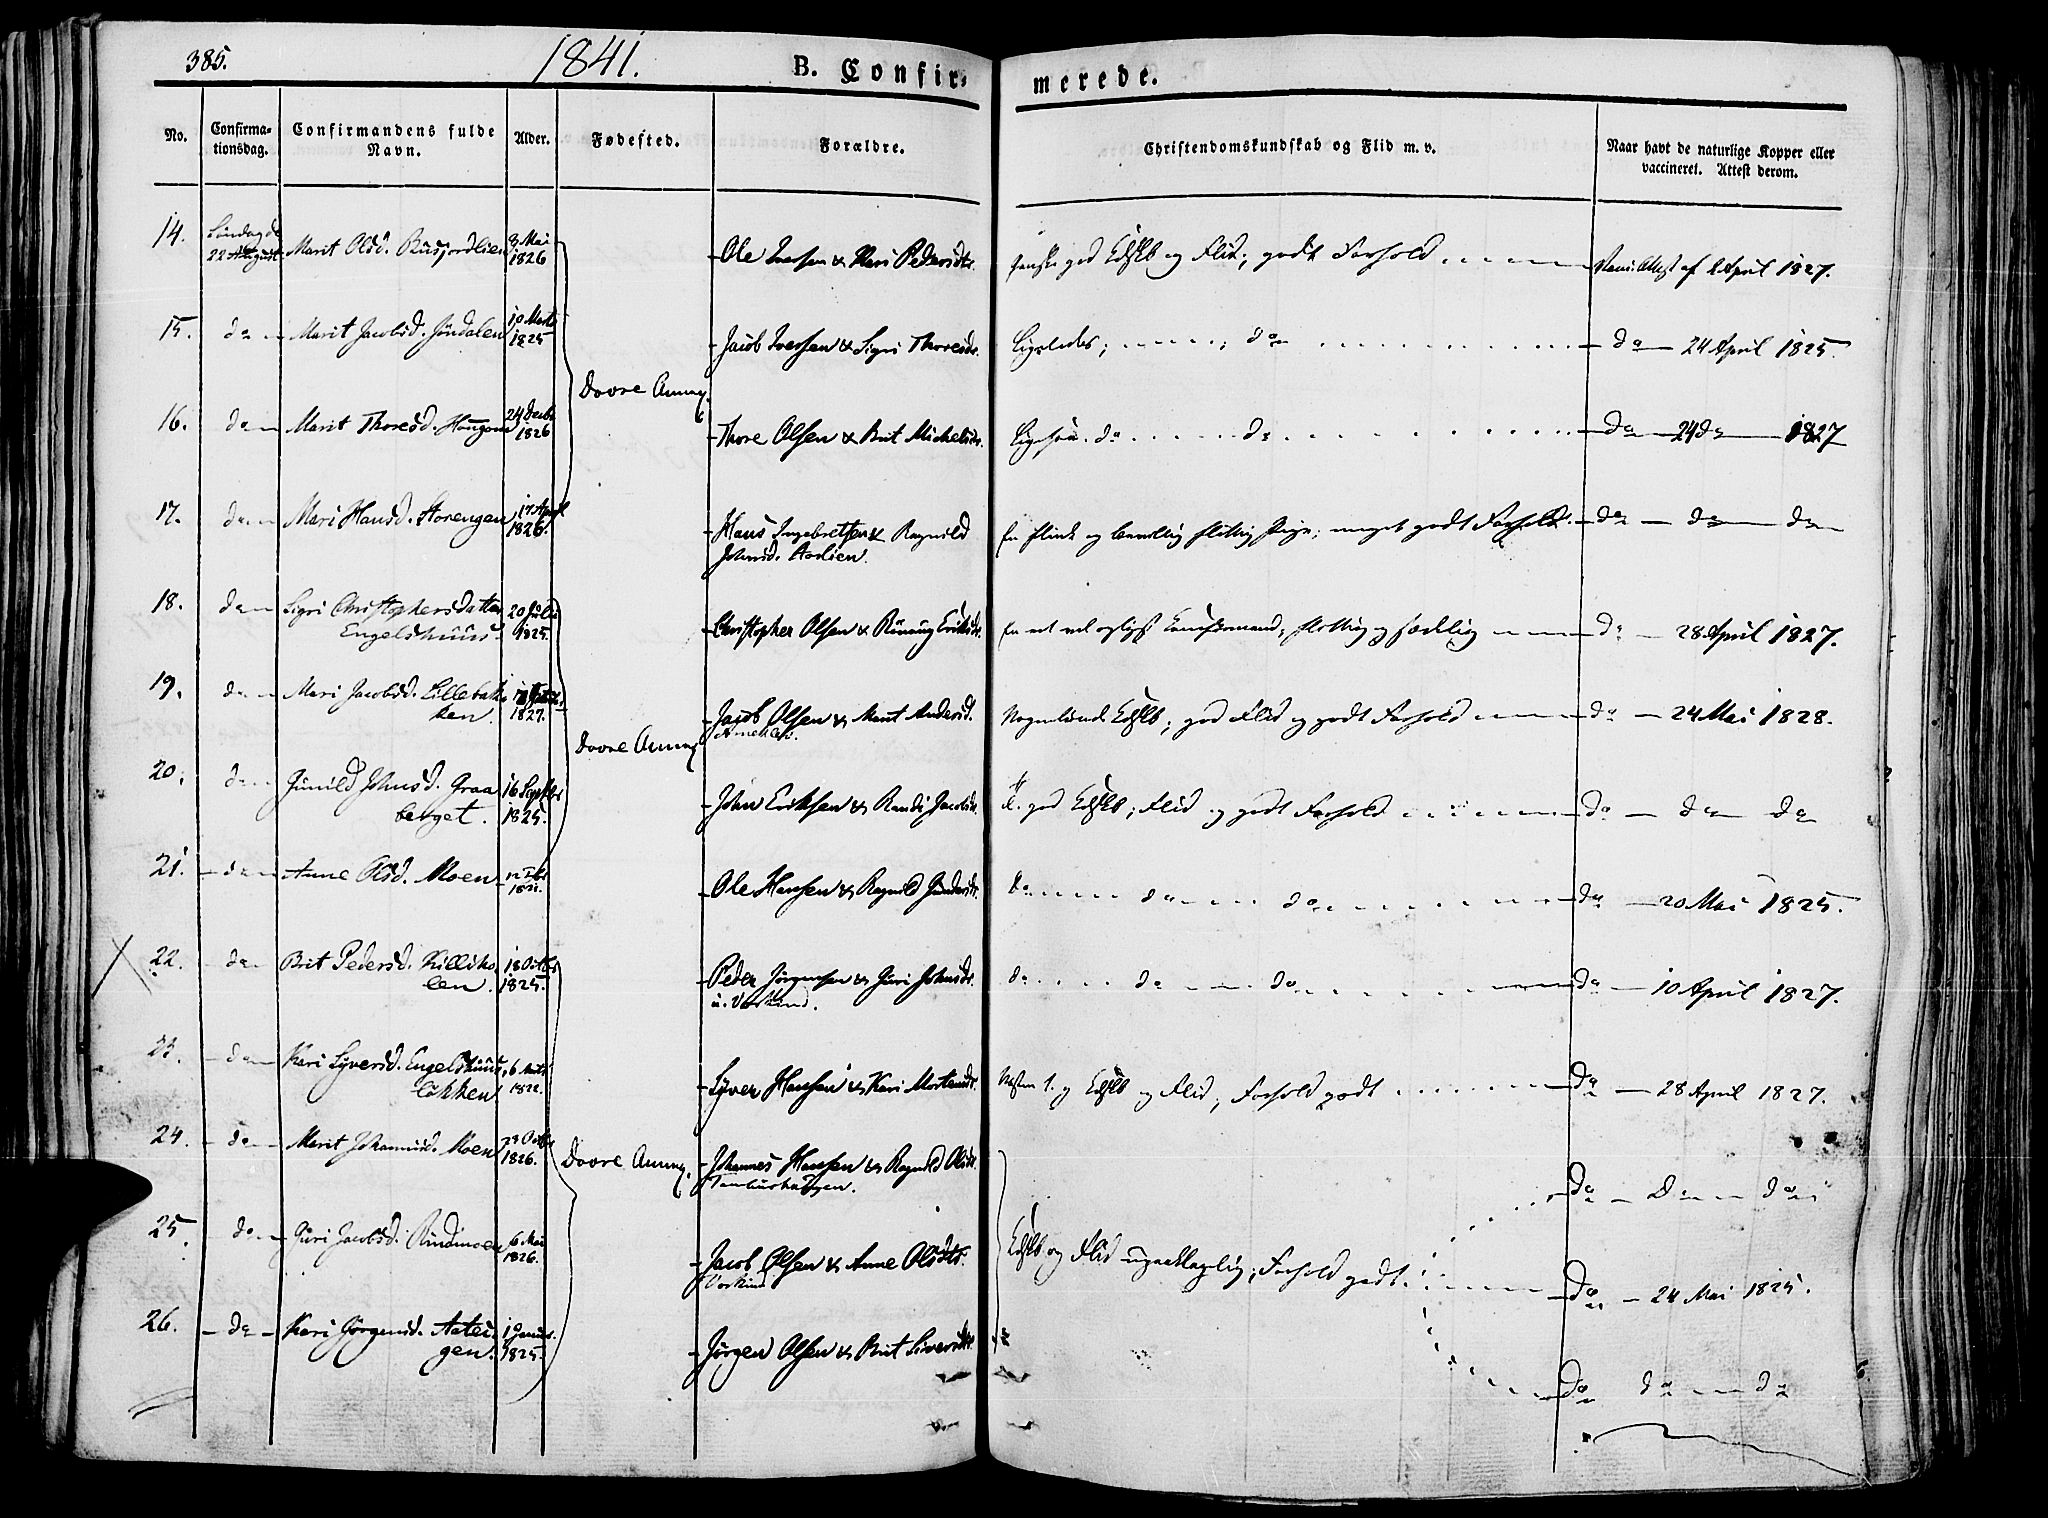 385.
1841.
B. Confir-
merede.
No.
Confirma-
tionsdag.
Confirmandens fulde
Navn.
Alder.
Fødested.
Forældre.
Christendomskundskab og Flid m. v.
Naar havt de naturlige Kopper eller
vaccineret. Attest derom.
14. Søndag d. 22 August Marit Olsd. 8 Mai 1826 Ole Iversen & Kari Pedersdtr. ganske god Cdskb og Flid; godt Forhold Vacc. Attest af 2 April 1827.
15. do Marit Jacobsd. Jöndalen 10 Marts 1825 Jacob Iversen & Sigri Thoresdr. Ligeledes; do do 24 April 1825.
Dovre Annex.
16. do Marit Thoresd. Haugen 24 Decbr 1826 Thore Olsen & Brit Michelsdr. Ligesaa. do do do 24 do 1827
17. do Mari Hansd. Storengen 17 April 1826. Hans Ingebretsen & Ragnild
Johnsd. Aalien.
En flink og flittig Pige; meget godt Forhold. do do do
18. do Sigri Christophersdatter
Engelshuus.
20 Juli 1825. Christopher Olsen & Rönnug Eriksdr. En flittig og sædelig do 28 April 1827.
19. do Mari Jacobsd. Lillebak-
ken.
1827. Jacob Olsen & Marit Andersd.
Nogenlunde Cdskb; god Flid og godt Forhold do 24 Mai 1828.
Dovre Annex
20. do Gunild Johnsd. Graa
berget.
16 Septbr 1825. John Eriksen & Randi Jacobsdr. god Cdskb; Flid og godt Forhold do do do
21. do Anne Olsd. Moen Ole Hansen & Ragnild do do do do 20 Mai 1825.
22. do Brit Pedersd. Killiho-
len.
18 Octbr 1825. Peder Jörgensen & Guri Johnsdr.
do do do do 10 April 1827.
23. do Kari Syversd. Engelshuus
lökken
6 1822. Syver Hansen & Kari Mortensdr. Næsten Cdskb og Flid; Forhold godt do 28 April 1827.
24. do Marit Johannesd. Moen Octbr 1826. Dovre Annex. Johannes Hansen & Ragnild Olsdr.
do do do
25. do Guri Jacobsd. Rindmoen 6 Mai 1826. Jacob Olsen & Anne Olsdtr.
Cdskb og Flid upaaklagelig; Forhold godt. do 24 Mai 1825.
26. do Kari Jörgensd.
gen.
1 Januar 1825. Jörgen Olsen & Brit Siversdtr. do do do